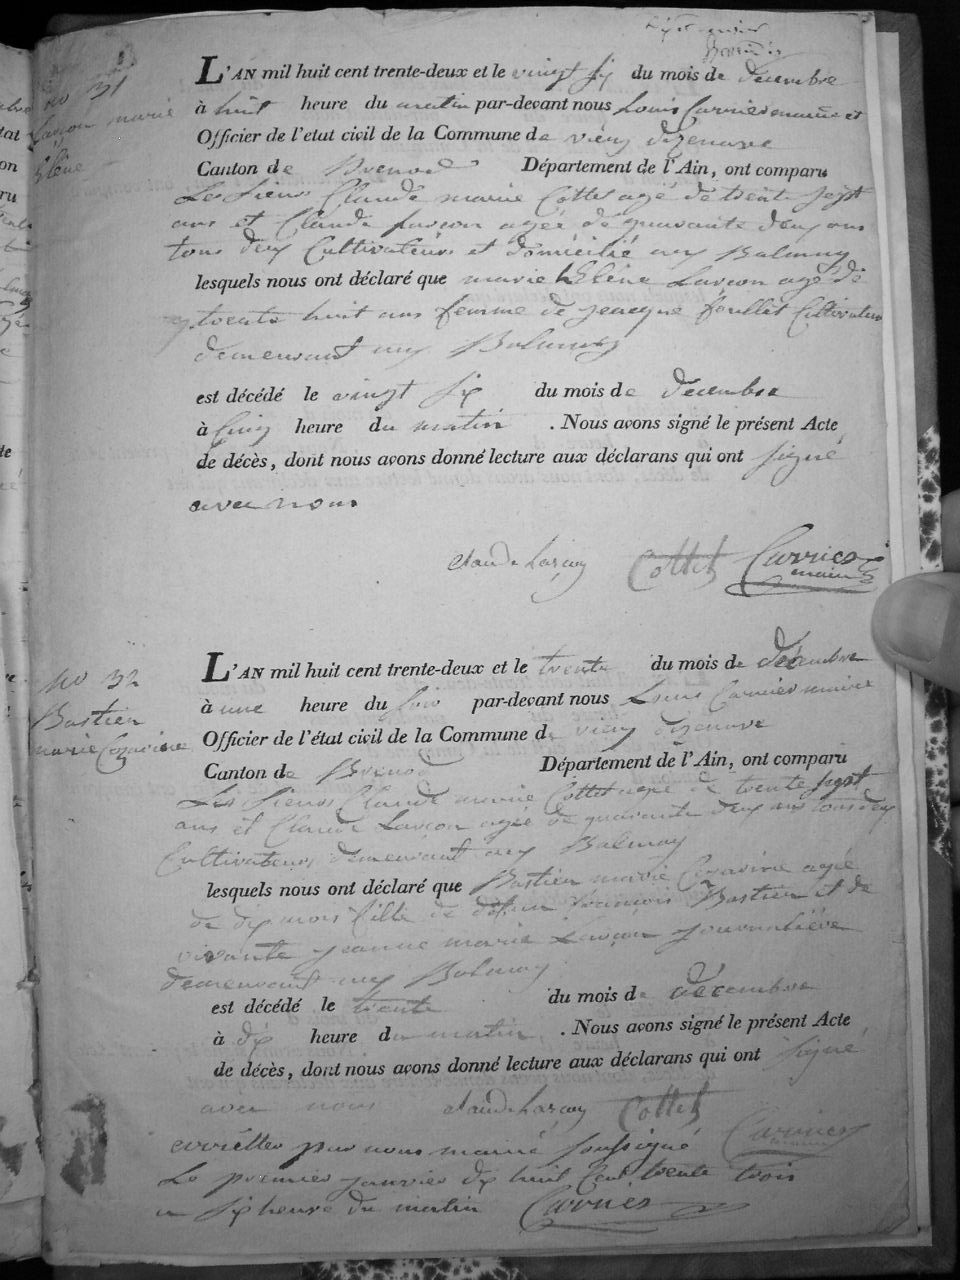 no 31
Larcon marie
hlène
L'AN mil huit cent trente-deux et le vingt six du mois de décembre
à huit heure du matin par-devant nous Louis Carrier maire et
Officier de l'etat civil de la Commune de vieux dizenave
Canton de Brenod Département de l'Ain, ont comparu
Les Sieurs Claude marie Cottet agé de trente sept
ans et Claude Larcon agée de quarante deux ans
tous deux Cultivateurs et domicilié aux Balmay
lesquels nous ont déclaré que marie hElène Larcon agé de
trente huit ans femme de jeacque feullet Cultivateur
demeurant aux Balmay
est décédé le vingt six du mois de décembre
à Cinq heure du matin . Nous avons signé le présent Acte
de décès, dont nous avons donné lecture aux déclarans qui ont signé
avec nous
claude Larcon Cottet Carrier
maire
no 32
Bastien
marie Cezarine
L'AN mil huit cent trente-deux et le trente du mois de décembre
à une heure du soir par-devant nous Louis Carrier maire
Officier de l'état civil de la Commune de vieux dizenave
Canton de Brenod Département de l'Ain, ont comparu
Les Sieurs Claude marie Cottet agé de trente sept
ans et Claude Larcon agée de quarante deux ans tous deux
Cultivateurs demeurant aux Balmay
lesquels nous ont déclaré que Bastien marie Cezarine agée
de dix mois fille de défun francois Bastien et de
vivante jeanne marie Larcon journalière
demeurant aux Balmay
est décédé le trente du mois de décembre
à dix heure du matin . Nous avons signé le présent Acte
de décès, dont nous avons donné lecture aux déclarans qui ont signé
avec nous claude Larcon Cottet Carrier
arrétter par nous maire soussigné
Le premier janvier dix huit Cent trente trois
a six heure du matin Carrier